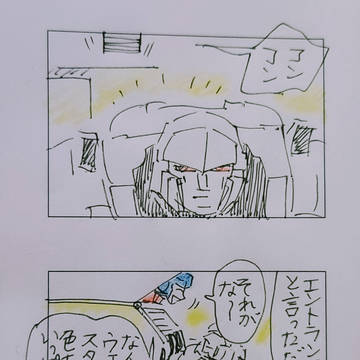 コン
コン
エントラン
と言った
それが
な〜
なん
ウエ
スタ